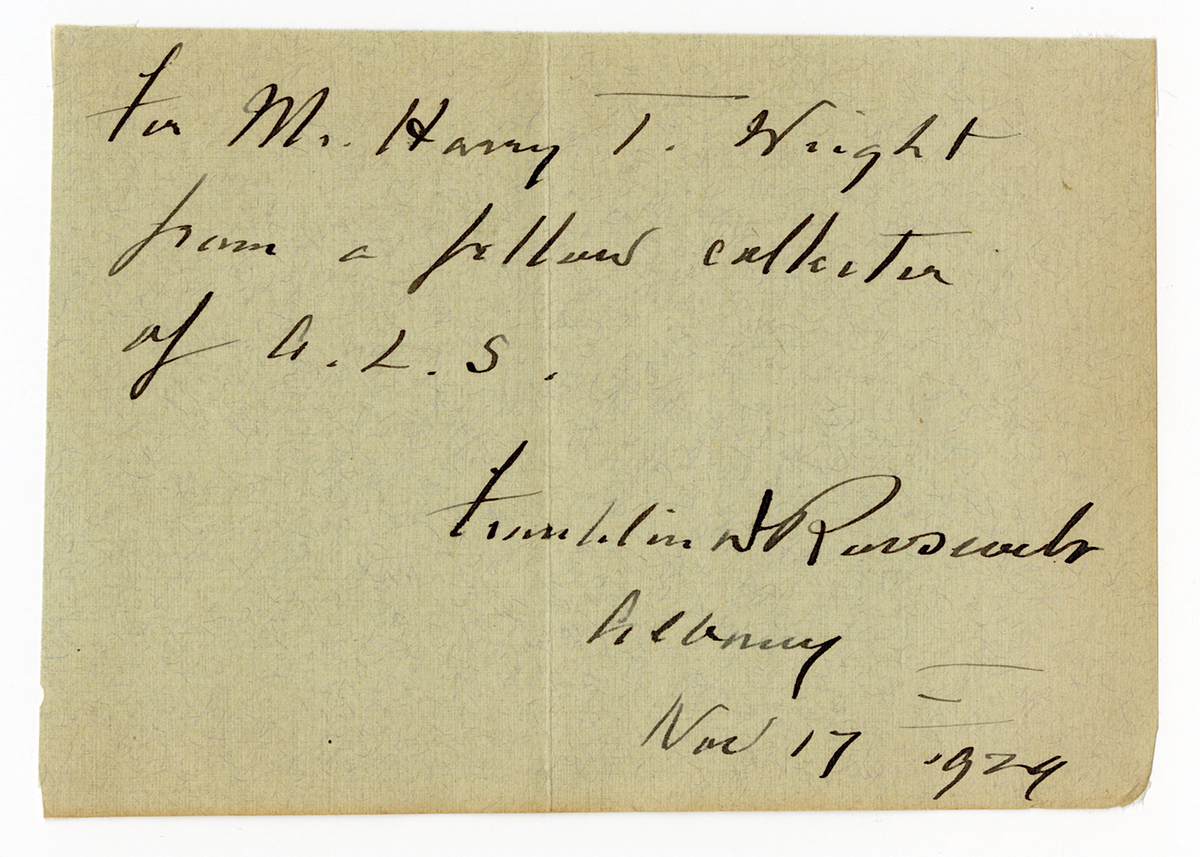 For Mr. Harry T. Wright
from a fellow collector
of A. L. S.
Franklin D Roosevelt
Albany
Nov 17 1929